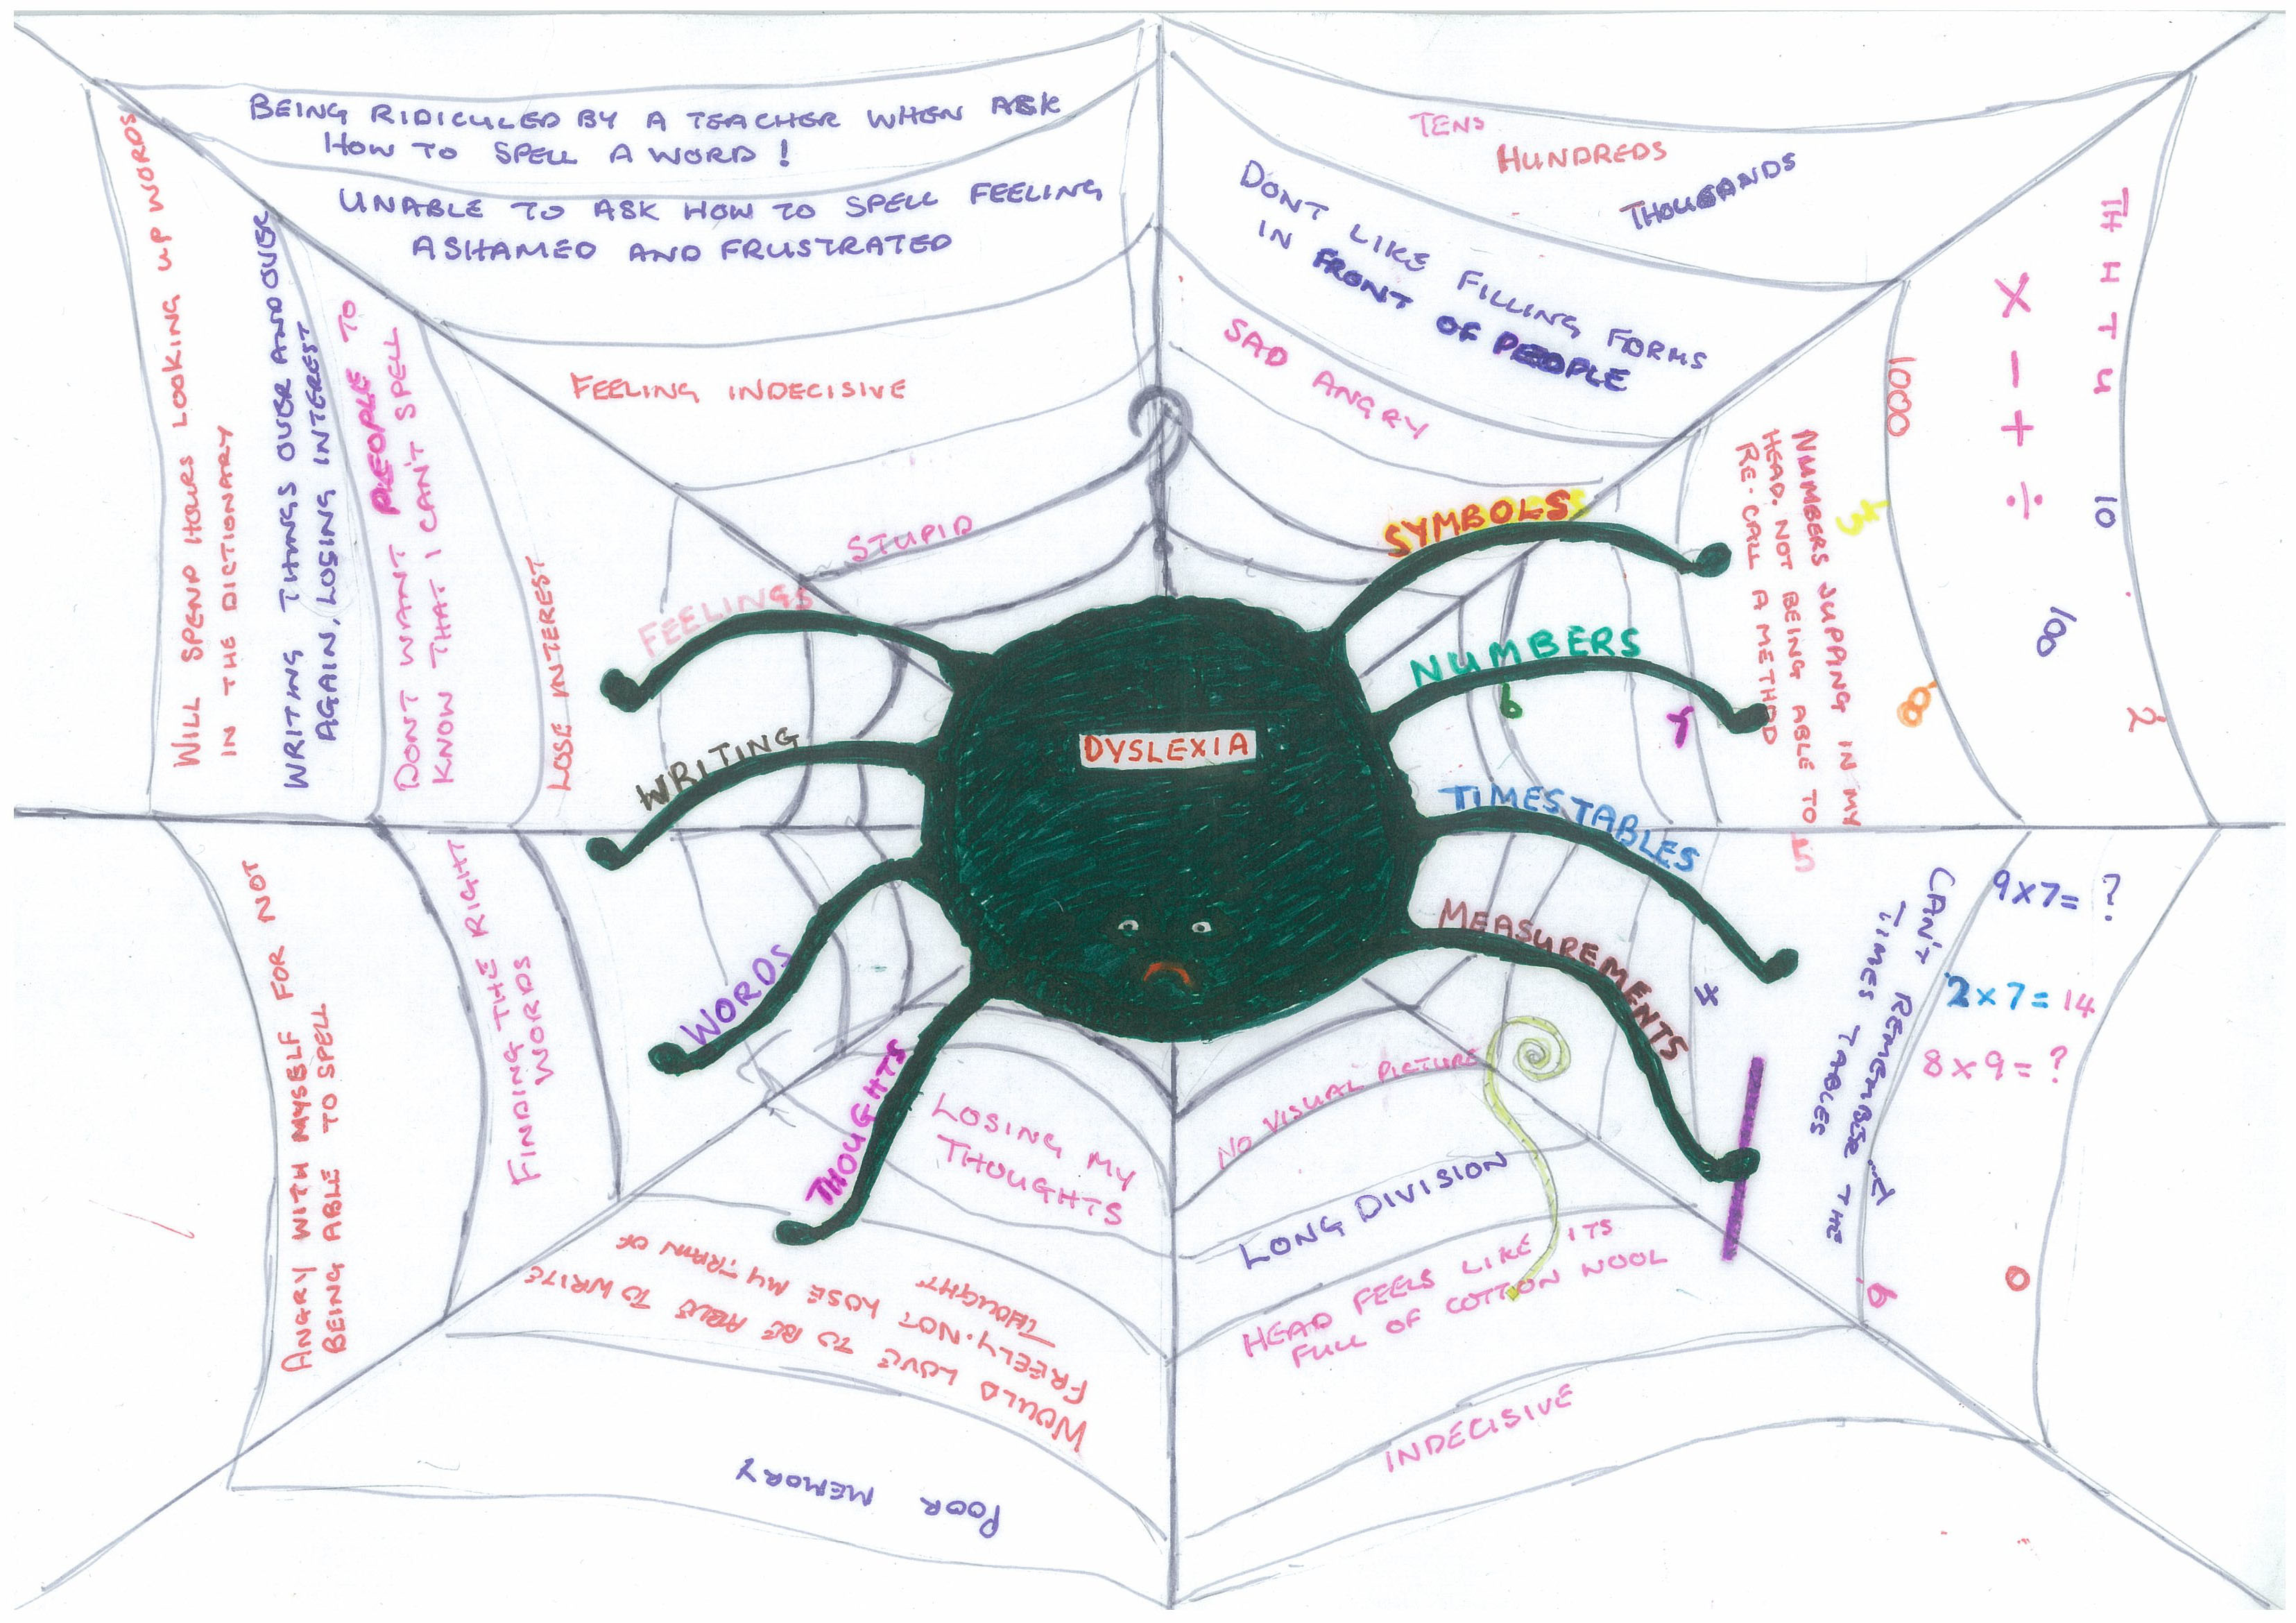 BEING RIDICULED BY A TEACHER WHEN ASK
HOW TO SPELL A WORD!
UNABLE TO ASK HOW TO SPELL FEELING
ASHAMED AND FRUSTRATED
FEELING INDECISIVE
STUPID
TENS
HUNDREDS
THOUSANDS
DONT LIKE FILLING FORMS
IN FRONT OF PEOPLE
SAD ANGRY
TH H T U
10
2
X - + ÷
100
1000
3
8
NUMBERS JUPING IN MY
HEAD. NOT BEING ABLE TO
RE-CALL A METHOD
WILL SPEND HOURS LOOKING UP WORDS
IN THE DICTIONARY
WRITING THINGS OVER AND OVER
AGAIN, LOSING INTEREST
DONT WANT PEOPLE TO
KNOW THAT I CAN'T SPELL
LOSE INTEREST
FEELINGS
WRITING
WORDS
THOUGHTS
DYSLEXIA
SYMBOLS
NUMBERS
6
TIMESTABLES
MEASUREMENTS
5
4
ANGRY WITH MYSELF FOR NOT
BEING ABLE TO SPELL
FINDING THE RIGHT
WORDS
LOSING MY
THOUGHTS
WOULD LOVE TO BE ABLE TO WRITE
FREELY. NOT LOSE MY TRAIN OF
THOUGHT
POOR MEMORY
NO VISUAL PICTURE
LONG DIVISION
HEAD FEELS LIKE ITS
FULL OF COTTON WOOL
INDECISIVE
CAN'T REMEMBER THE
TIMES TABLES
9x7= ?
2x7= 14
8x9= ?
6
0